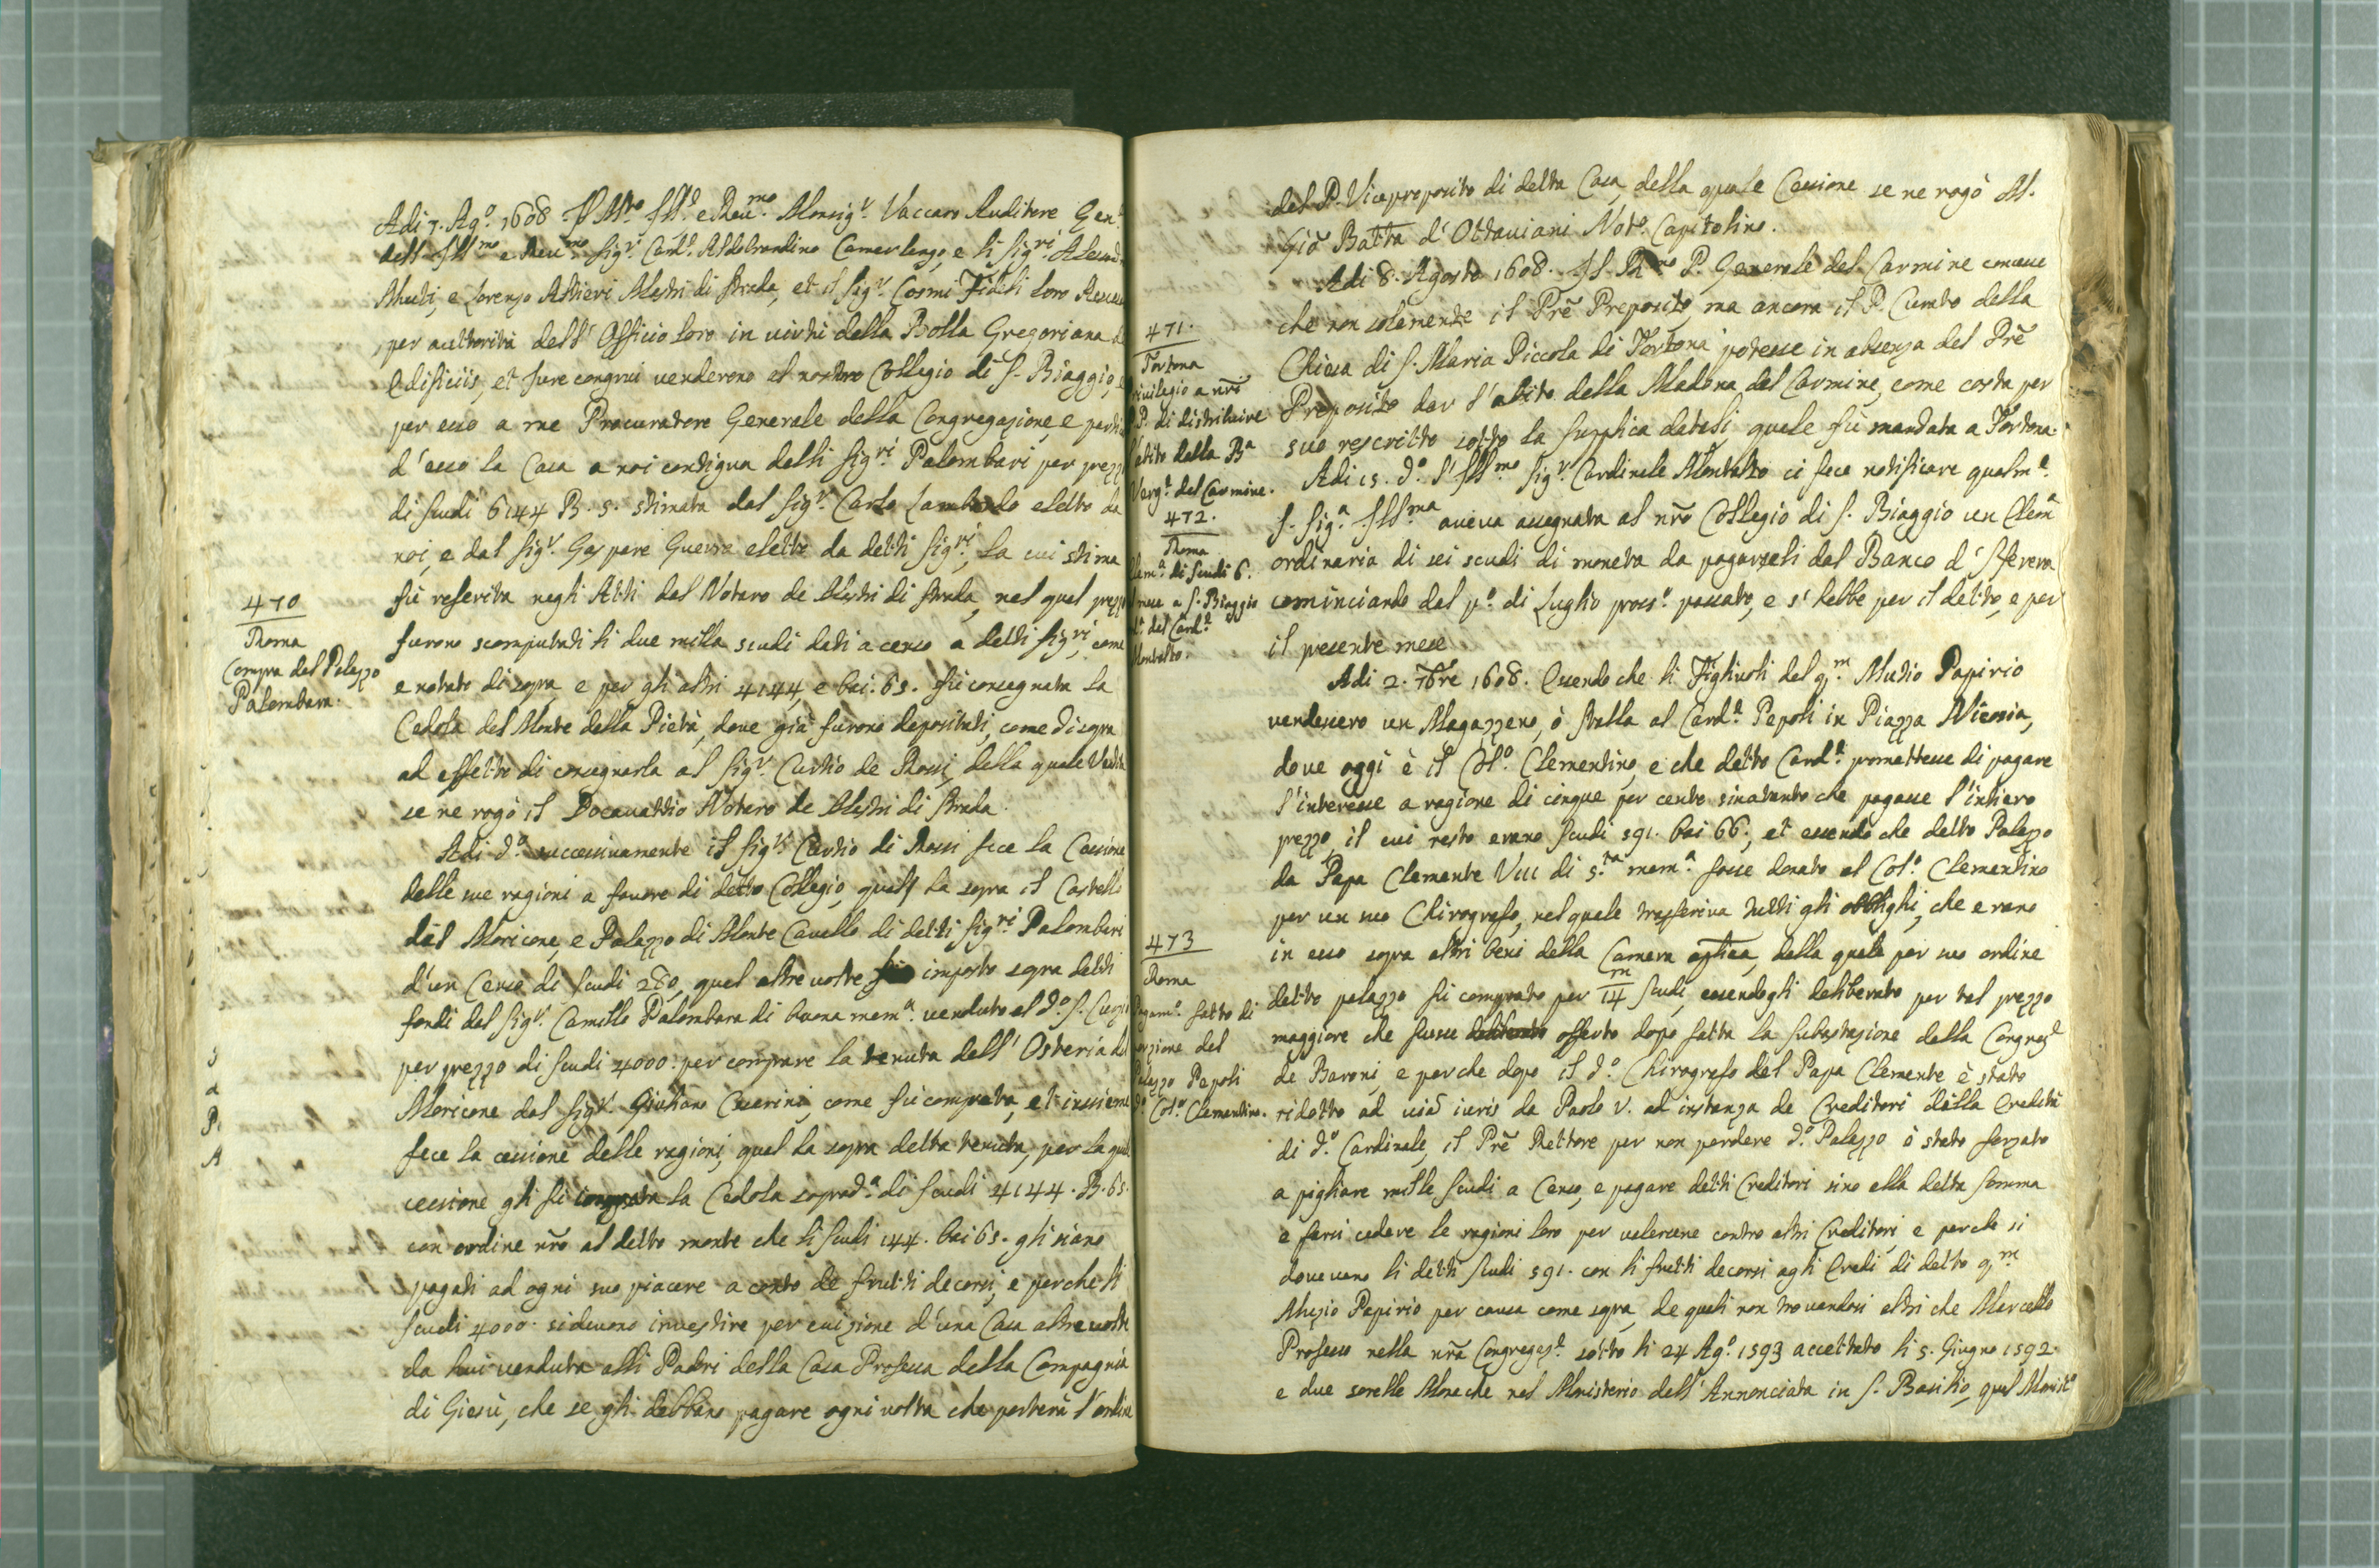 Adi 7. Ag.o 1608 Il M.to Ill.e e Reu.mo Monsig.r Vaccaro Auditore Gen.
dell' Ill.mo e Reu.mo Sig.r Card.l Aldobrandino Camerlengo, e li Sig.ri
Muti, e Lorenzo Altieri Mastri di strada, et il Sig.r Cosmi Fideli loro
per auttorità dell' Officio loro in virtù della Bolla Gregoriana de
Edificiis, et Iure congrui venderono al nostro Collegio di S. Biaggio, e
per esso a me Procuratore Generale della Congregazione, e
d'esso la Casa a noi contigua delli Sig.ri Palombari per prezzo
di scudi 6144 B. 5. stimata dal Sig.r Carlo Lambardo eletto da
noi, e dal Sig.r Gaspare Guerra eletto da detti Sig.ri, la cui stima
fù referita negli Atti del Notaro de Mastri di strada, nel qual prezzo
furono scomputati li due milla scudi dati a censo a detti Sig.ri, come
e notato di sopra, e per gli altri 4144, e bai. 65. fù consegnata la
Cedola del Monte della Pietà, dove già furono depositati, come di sopra
ad effetto di consegnarla al Sig.r Curtio de Rossi, della quale Vendita
se ne rogò il Notaro de Mastri di strada.
Adi d.o successivamente il Sig.r Curtio di Rossi fece la Cessione
delle sue ragioni a favore di detto Collegio, quall' ha sopra il Castello
del Moricone, e Palazzo di Monte Cavallo di detti Sig.ri Palombari
d'un Censo di scudi 280, qual altre volte imposto sopra detti
fondi dal Sig.r Camillo Palombara di buona mem.a venduto al d.o S. Curzio
per prezzo di scudi 4000. per comprare la tenuta dell' Osteria del
Moricone dal Sig.r Giuliano Cesarini, come fù comprata, et insieme
fece la cessione delle ragioni, qual ha sopra detta tenuta, per la qual
cessione gli fù la Cedola soprad.a di scudi 4144. B. 65.
con ordine nrõ al detto monte che li scudi 144. bai 65. gli siano
pagati ad ogni suo piacere a conto de frutti decorsi, e perche li
scudi 4000. si devono investire per euizione d'una Casa altre volte
da lui venduta alli Padri della Casa Professa della Compagnia
di Giesù, che se gli debbano pagare ogni volta che porterà l'ordine
470
Roma
Compra del Palazzo
Palombara.
del P. Viceproposito di detta Casa, della quale Cessione se ne rogò M.
Gio Batta d'Ottaviani Not.o Capitolino.
Adi 8. Agosto 1608. Il R.mo P. Generale del Carmine concesse
che non solamente il Prẽ Preposito, ma ancora il P. Curato della
Chiesa di S. Maria Piccola di Tortona potesse in absenza del Prẽ
Preposito dar l'abito della Madona del Carmine, come costa per
suo rescritto sotto la supplica datasi, quale fù mandata a Tortona.
Adi 15. d.o l'Ill.mo Sig.r Cardinale Montalto ci fece notificare qualm.e
S. Sig.a Ill.ma aveva assegnata al nrõ Collegio di S. Biaggio un Elem.a
ordinaria di sei scudi di moneta da pagarseli dal Banco d'
cominciando dal p.o di Luglio pross.o passato, e s'hebbe per il detto, e per
il presente mese
Adi 2. 7bre 1608. Essendo che li Figliuoli del q.m Mutio Papirio
vendessero un Magazzeno, ò stalla al Card.l Pepoli in Piazza Nicosia,
dove oggi è il Col.o Clementino, e che detto Card.l promettesse di pagare
l'interesse a ragione di cinque per cento sinatanto che pagasse l'intiero
prezzo, il cui resto erano scudi 591. bai 66, et essendo che detto Palazzo
da Papa Clemente VIII di s.ta mem.a fosse donato al Col.o Clementino
per un suo Chirografo, nel quale trasferiva tutti gli obblighi, che erano
in esso sopra altri beni della Camera aplica, dalla quale per suo ordine
detto palazzo fù comprato per 14 m scudi, essendogli deliberato per tal prezzo
maggiore che fusse offerto dopo fatta la subastazione della Congreg.e
de Baroni, e perche dopo il d.o Chirografo del Papa Clemente è stato
ridotto ad viã iuris da Paolo V. ad instanza de Creditori della Eredità
di d.o Cardinale, il Prẽ Rettore per non perdere d.o Palazzo è stato forzato
a pigliare mille scudi a Censo, e pagare detti Creditori sino alla detta somma
e farsi cedere le ragioni loro per valersene contro altri Creditori, e perche si
dovevano li detti scudi 591. con li frutti decorsi agli Eredi di detto q.m
Muzio Papirio per causa come sopra, de quali non trovandosi altri che Marcello
Professo nella nrã Congregaz.e sotto li 24 Ag.o 1593 accettato li 5. Giugno 1592.
e due sorelle Moneche nel Monisterio dell' Annonciata in S. Basilio, qual Monist.o
471.
Tortona
rivilegio a nrĩ
P. di distribuire
abito della B.a
Verg.e del Carmine.
472.
Roma
lem.a di scudi 6.
mese a S. Biaggio
del Card.l
Montalto.
473
Roma
Pagam.o fatto di
porzione del
Palazzo Pepoli
Col.o Clementino.